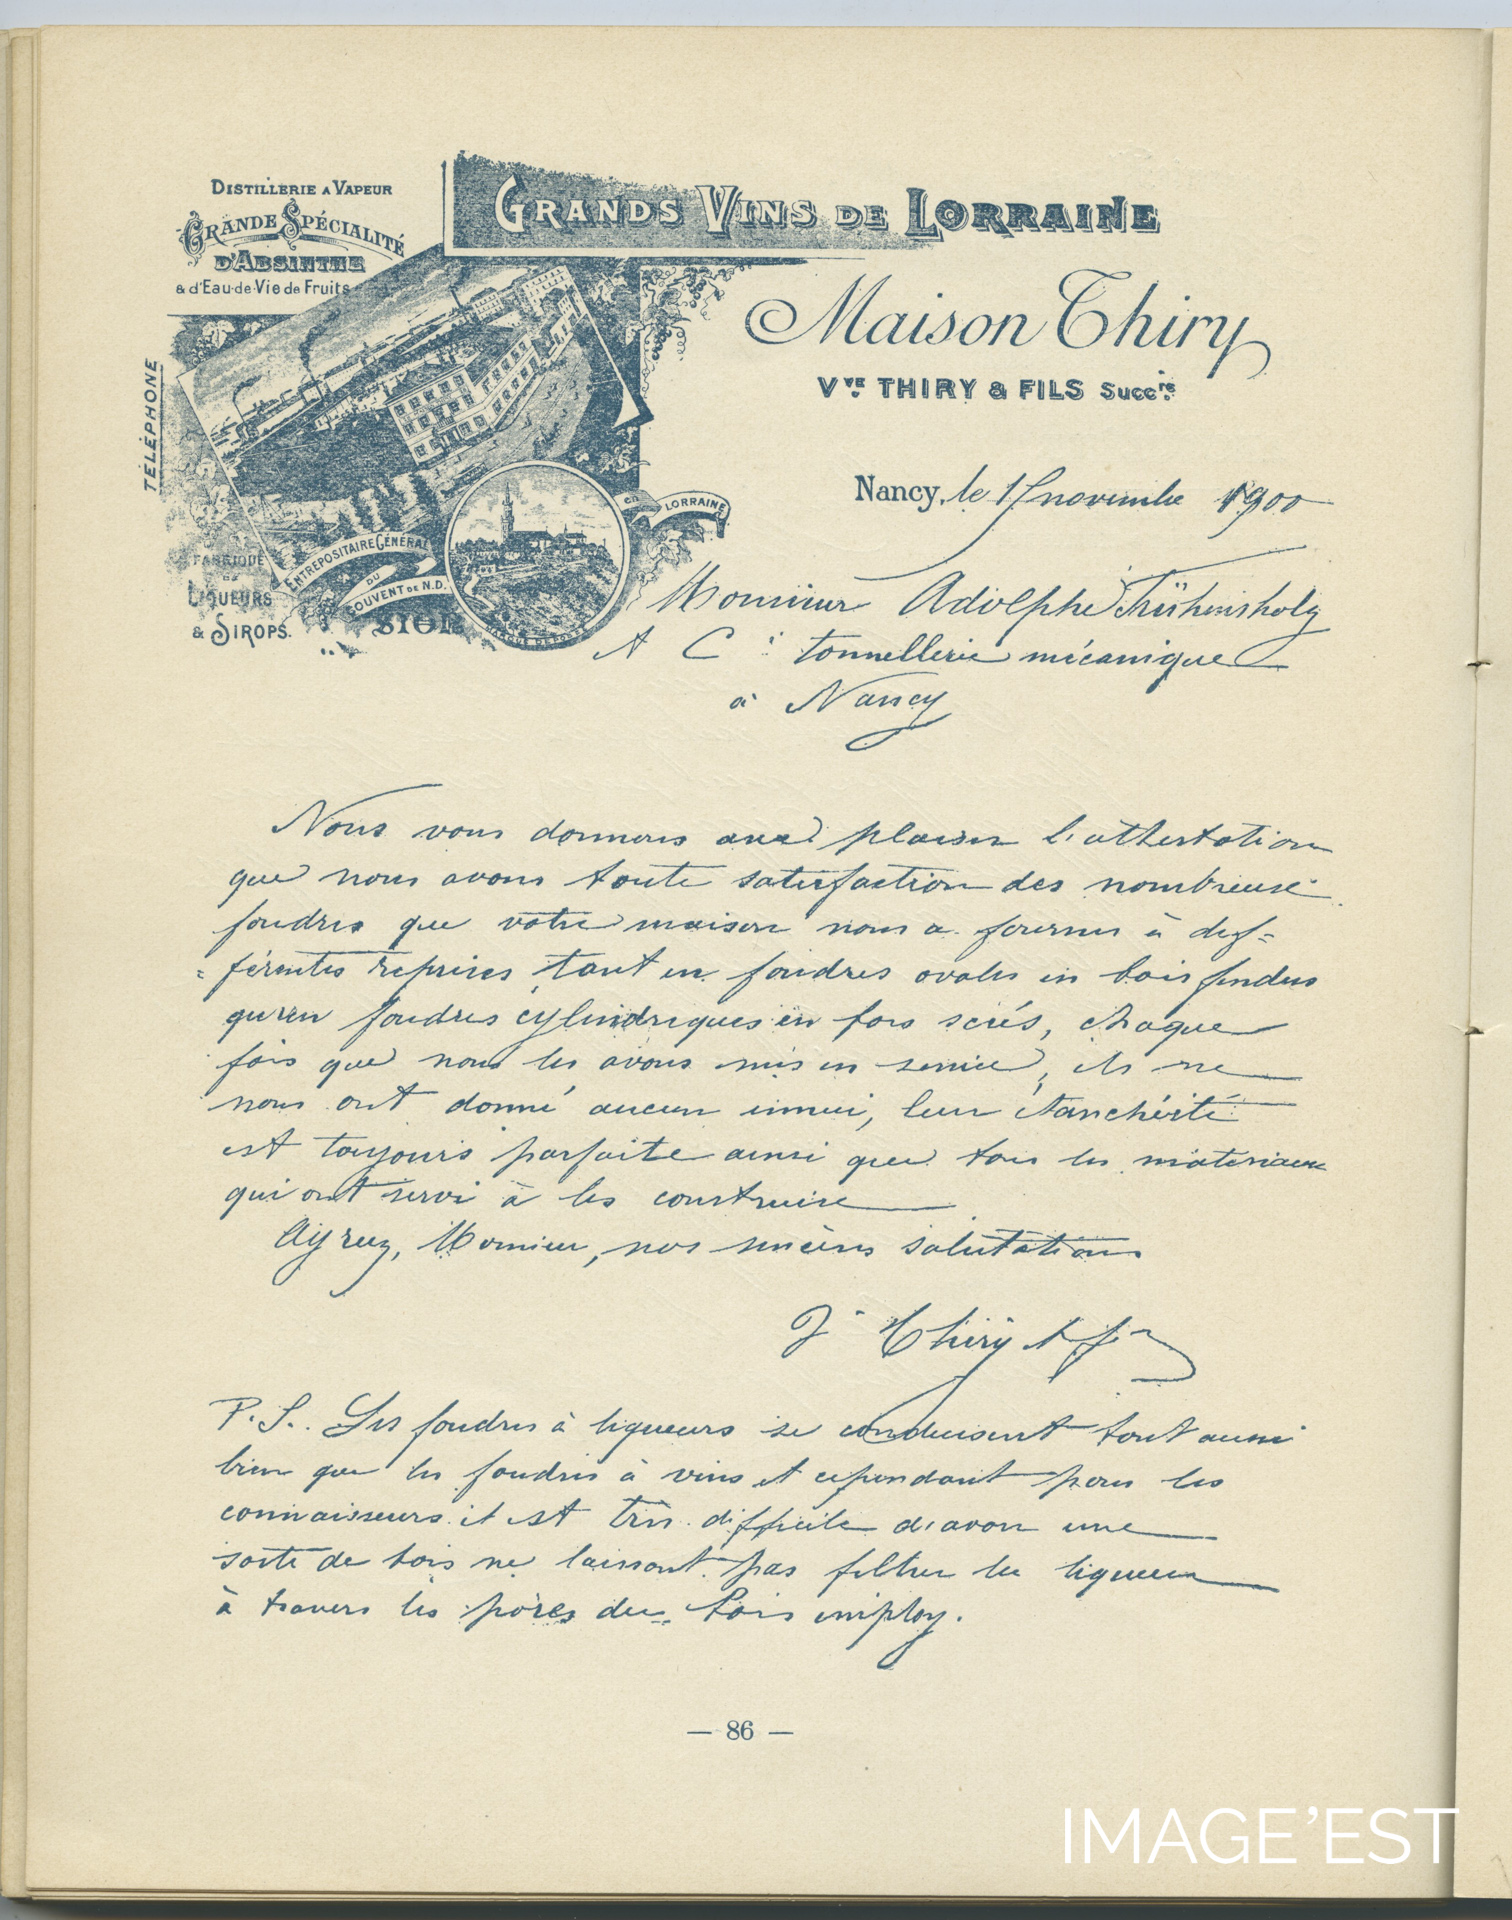 DISTILLERIE A VAPEUR
GRANDE SPÉCIALITÉ
D'ABSINTHE
& d'Eau-de-Vie de Fruits
GRANDS VINS DE LORRAINE
Maison Thiry
Vve THIRY & FILS Succrs
TÉLÉPHONE
Nancy, le novembre 1900
FABRIQUE
DE
LIQUEURS
& SIROPS.
ENTREPOSITAIRE GÉNÉRAL
DU
COUVENT DE N.D.
SION
en LORRAINE
MARQUE DÉPOSÉE
Monsieur Adolphe Frühinsholz
& Cie tonnellerie mécanique
à Nancy
Nous vous donnons avec plaisir l'attestation
que nous avons toute satisfaction des nombreuses
foudres que votre maison nous a fournis à dif=
=férentes reprises, tant en foudres ovales en bois fendus
qu'en foudres cylindriques en bois sciés, chaque
fois que nous les avons mis en service, ils ne
nous ont donné aucun ennui, leur étanchéité
est toujours parfaite ainsi que tous les matériaux
qui ont servi à les construire
Agréez, Monsieur, nos sincères salutations
Thiry & fs
P.S. Les foudres à liqueurs se conduisent tout aussi
bien que les foudres à vins et cependant pour les
connaisseurs il est très difficile d'avoir une
sorte de bois ne laissant pas filtrer la liqueur
à travers les pores du bois employ.
— 86 —
IMAGE'EST